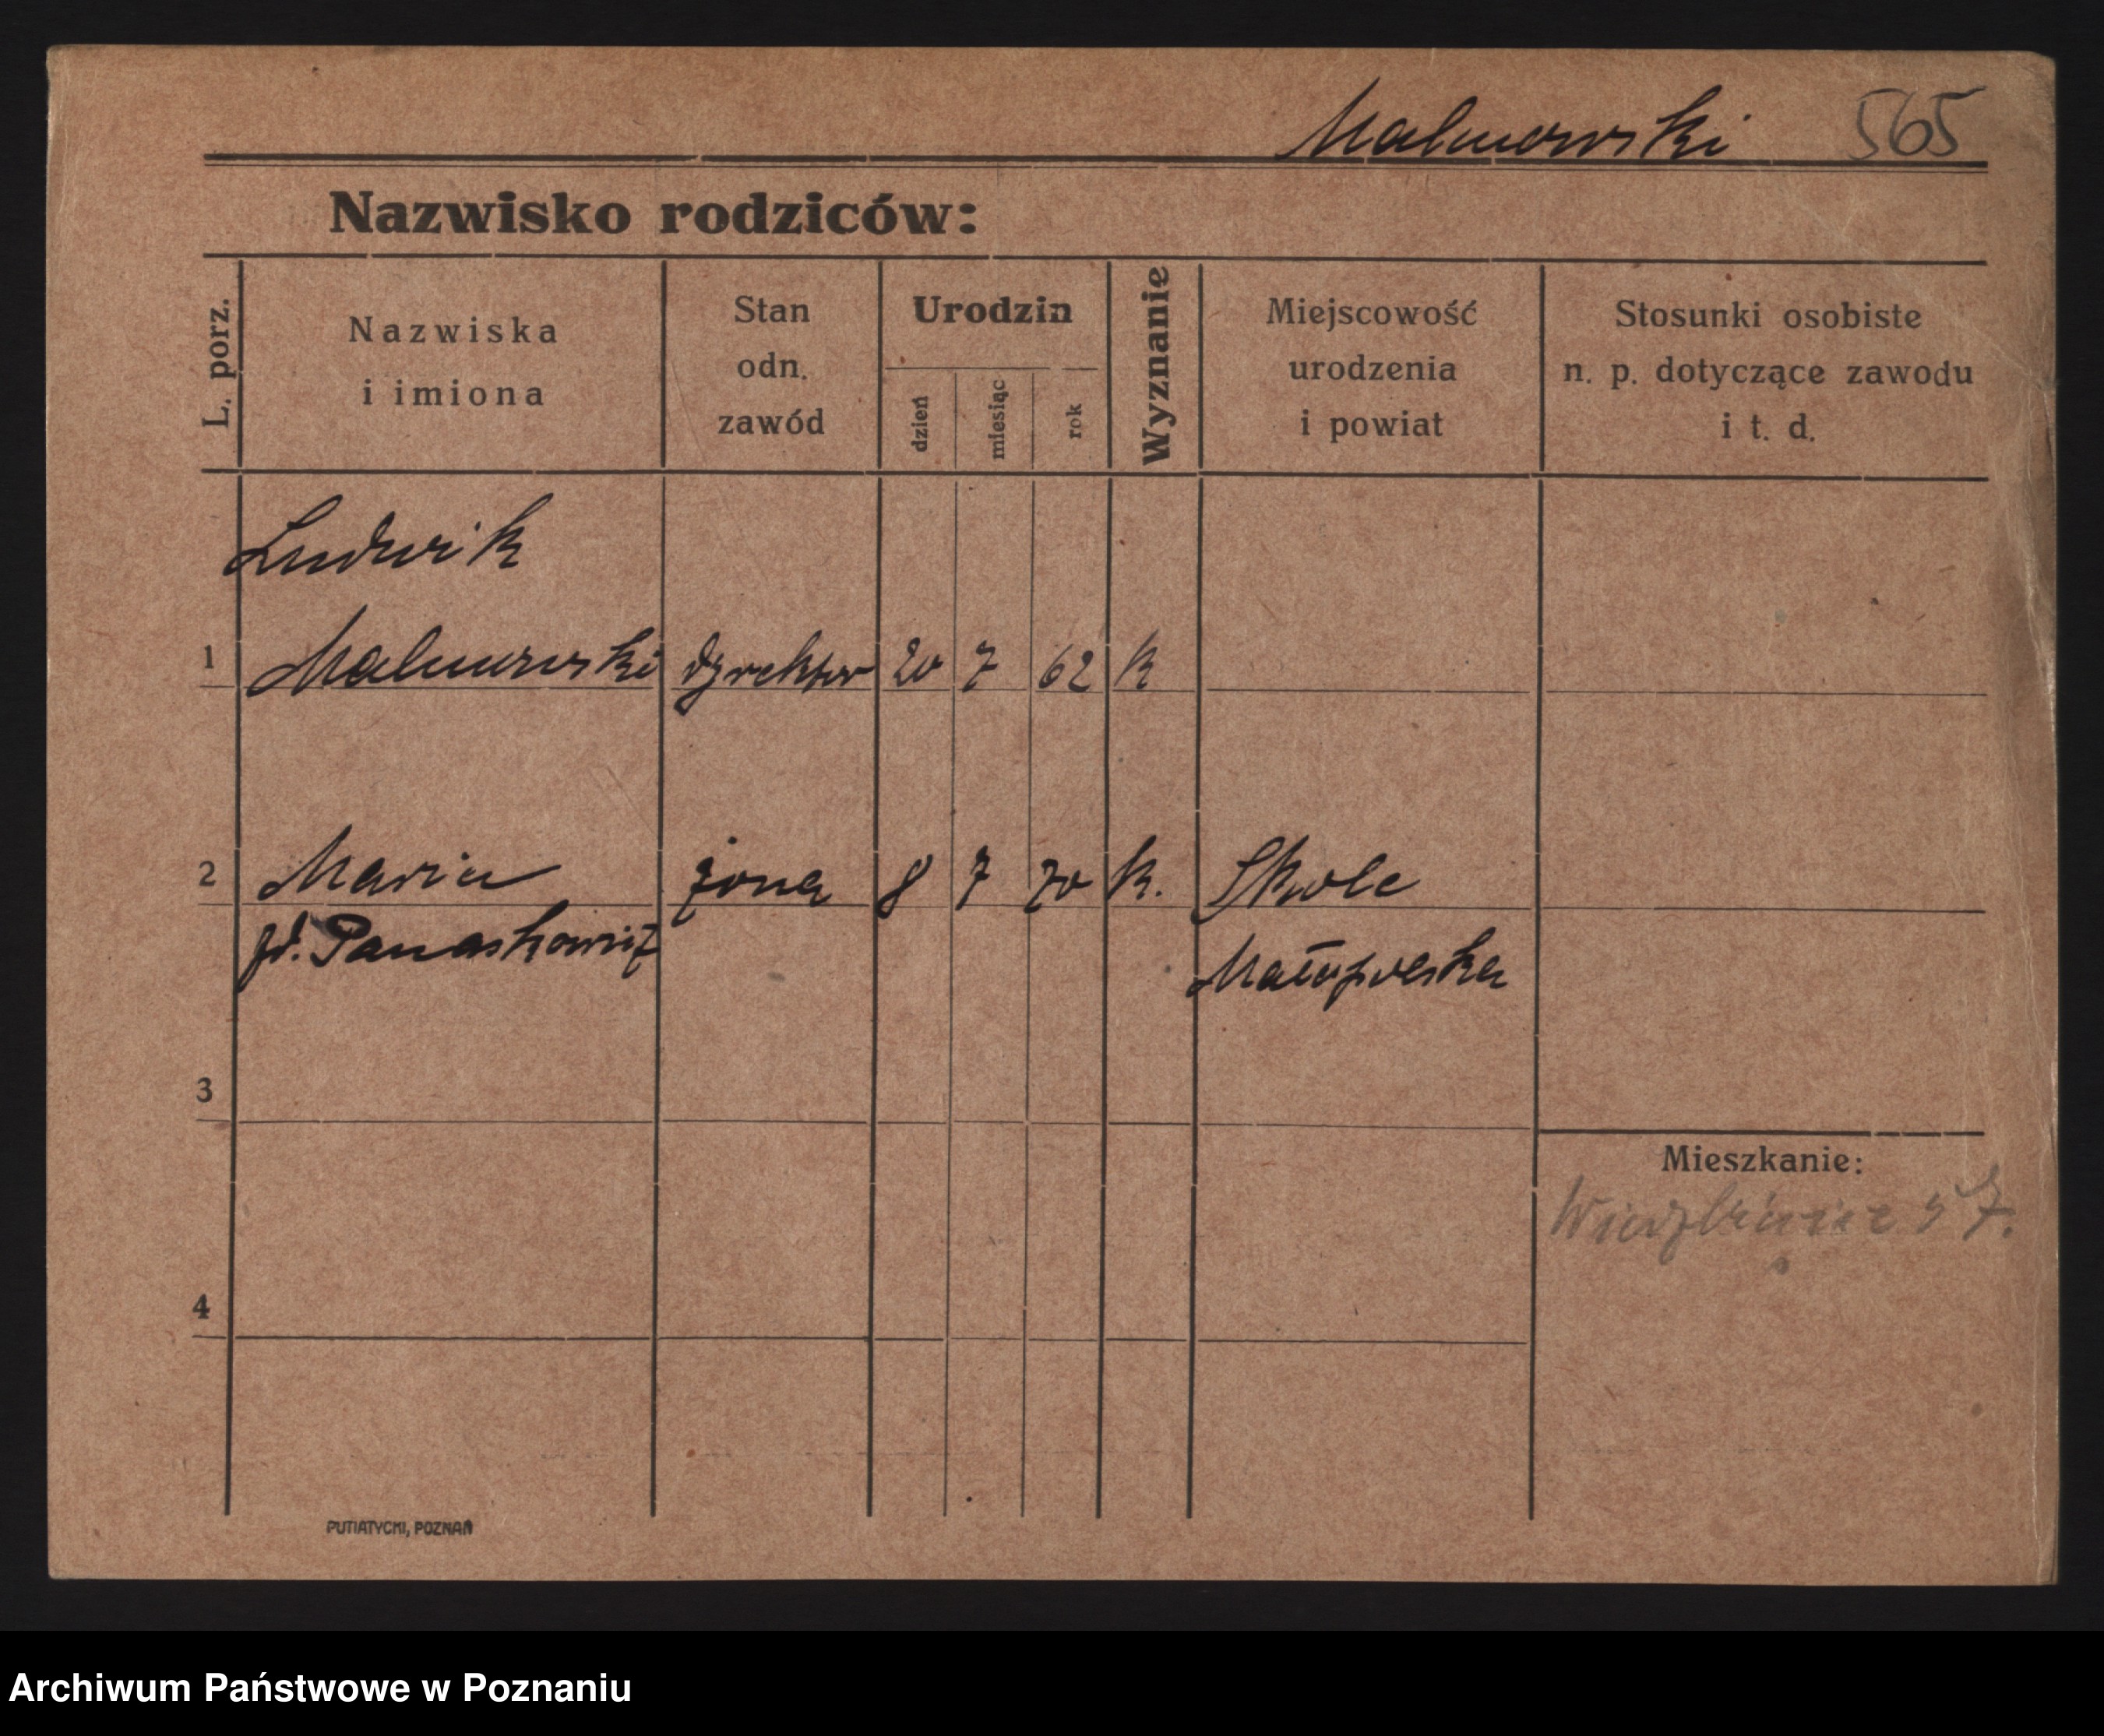 Malinowski 565
Nazwisko rodziców:
L. porz.
Nazwiska
i imiona
Stan
odn.
zawód
Urodzin
dzień
miesiąc
rok
Wyznanie
Miejscowość
urodzenia
i powiat
Stosunki osobiste
n. p. dotyczące zawodu
i t. d.
Ludwik
1 Malinowski dyrektor 20 7 62 k
2 Maria żona 8 7 70 k. Skole
Małopolska
3
Mieszkanie:
4
PUTIATYCKI, POZNAŃ
Archiwum Państwowe w Poznaniu